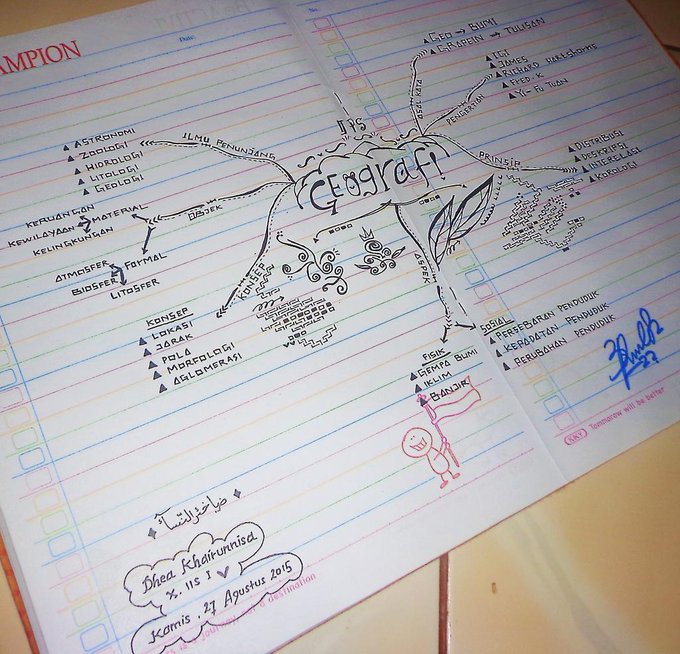 AMPION
Date:
IPS
GEOgrafi
ASAL KATA
GEO → BUMI
GRAPEIN → TULISAN
PENGERTIAN
IGI
JAMES
RICHARD HARTSHORNS
FRED. K
YI-FU TUAN
PRINSIP
DISTRIBUSI
DESKRIPSI
INTERELASI
KOROLOGI
ILMU PENUNJANG
ASTRONOMI
ZOOLOGI
HIDROLOGI
LITOLOGI
GEOLOGI
OBJEK
KERUANGAN
MATERIAL
KEWILAYAAN
KELINGKUNGAN
FORMAL
ATMOSFER
BIOSFER
LITOSFER
KONSEP
KONSEP
LOKASI
JARAK
POLA
MORFOLOGI
AGLOMERASI
ASPEK
FISIK
GEMPA BUMI
IKLIM
BANJIR
SOSIAL
PERSEBARAN PENDUDUK
KEPADATAN PENDUDUK
PERUBAHAN PENDUDUK
27
KKY Tommorow will be better
Dhea Khairunnisa
X. IIS I
Kamis, 27 Agustus 2015
a destination